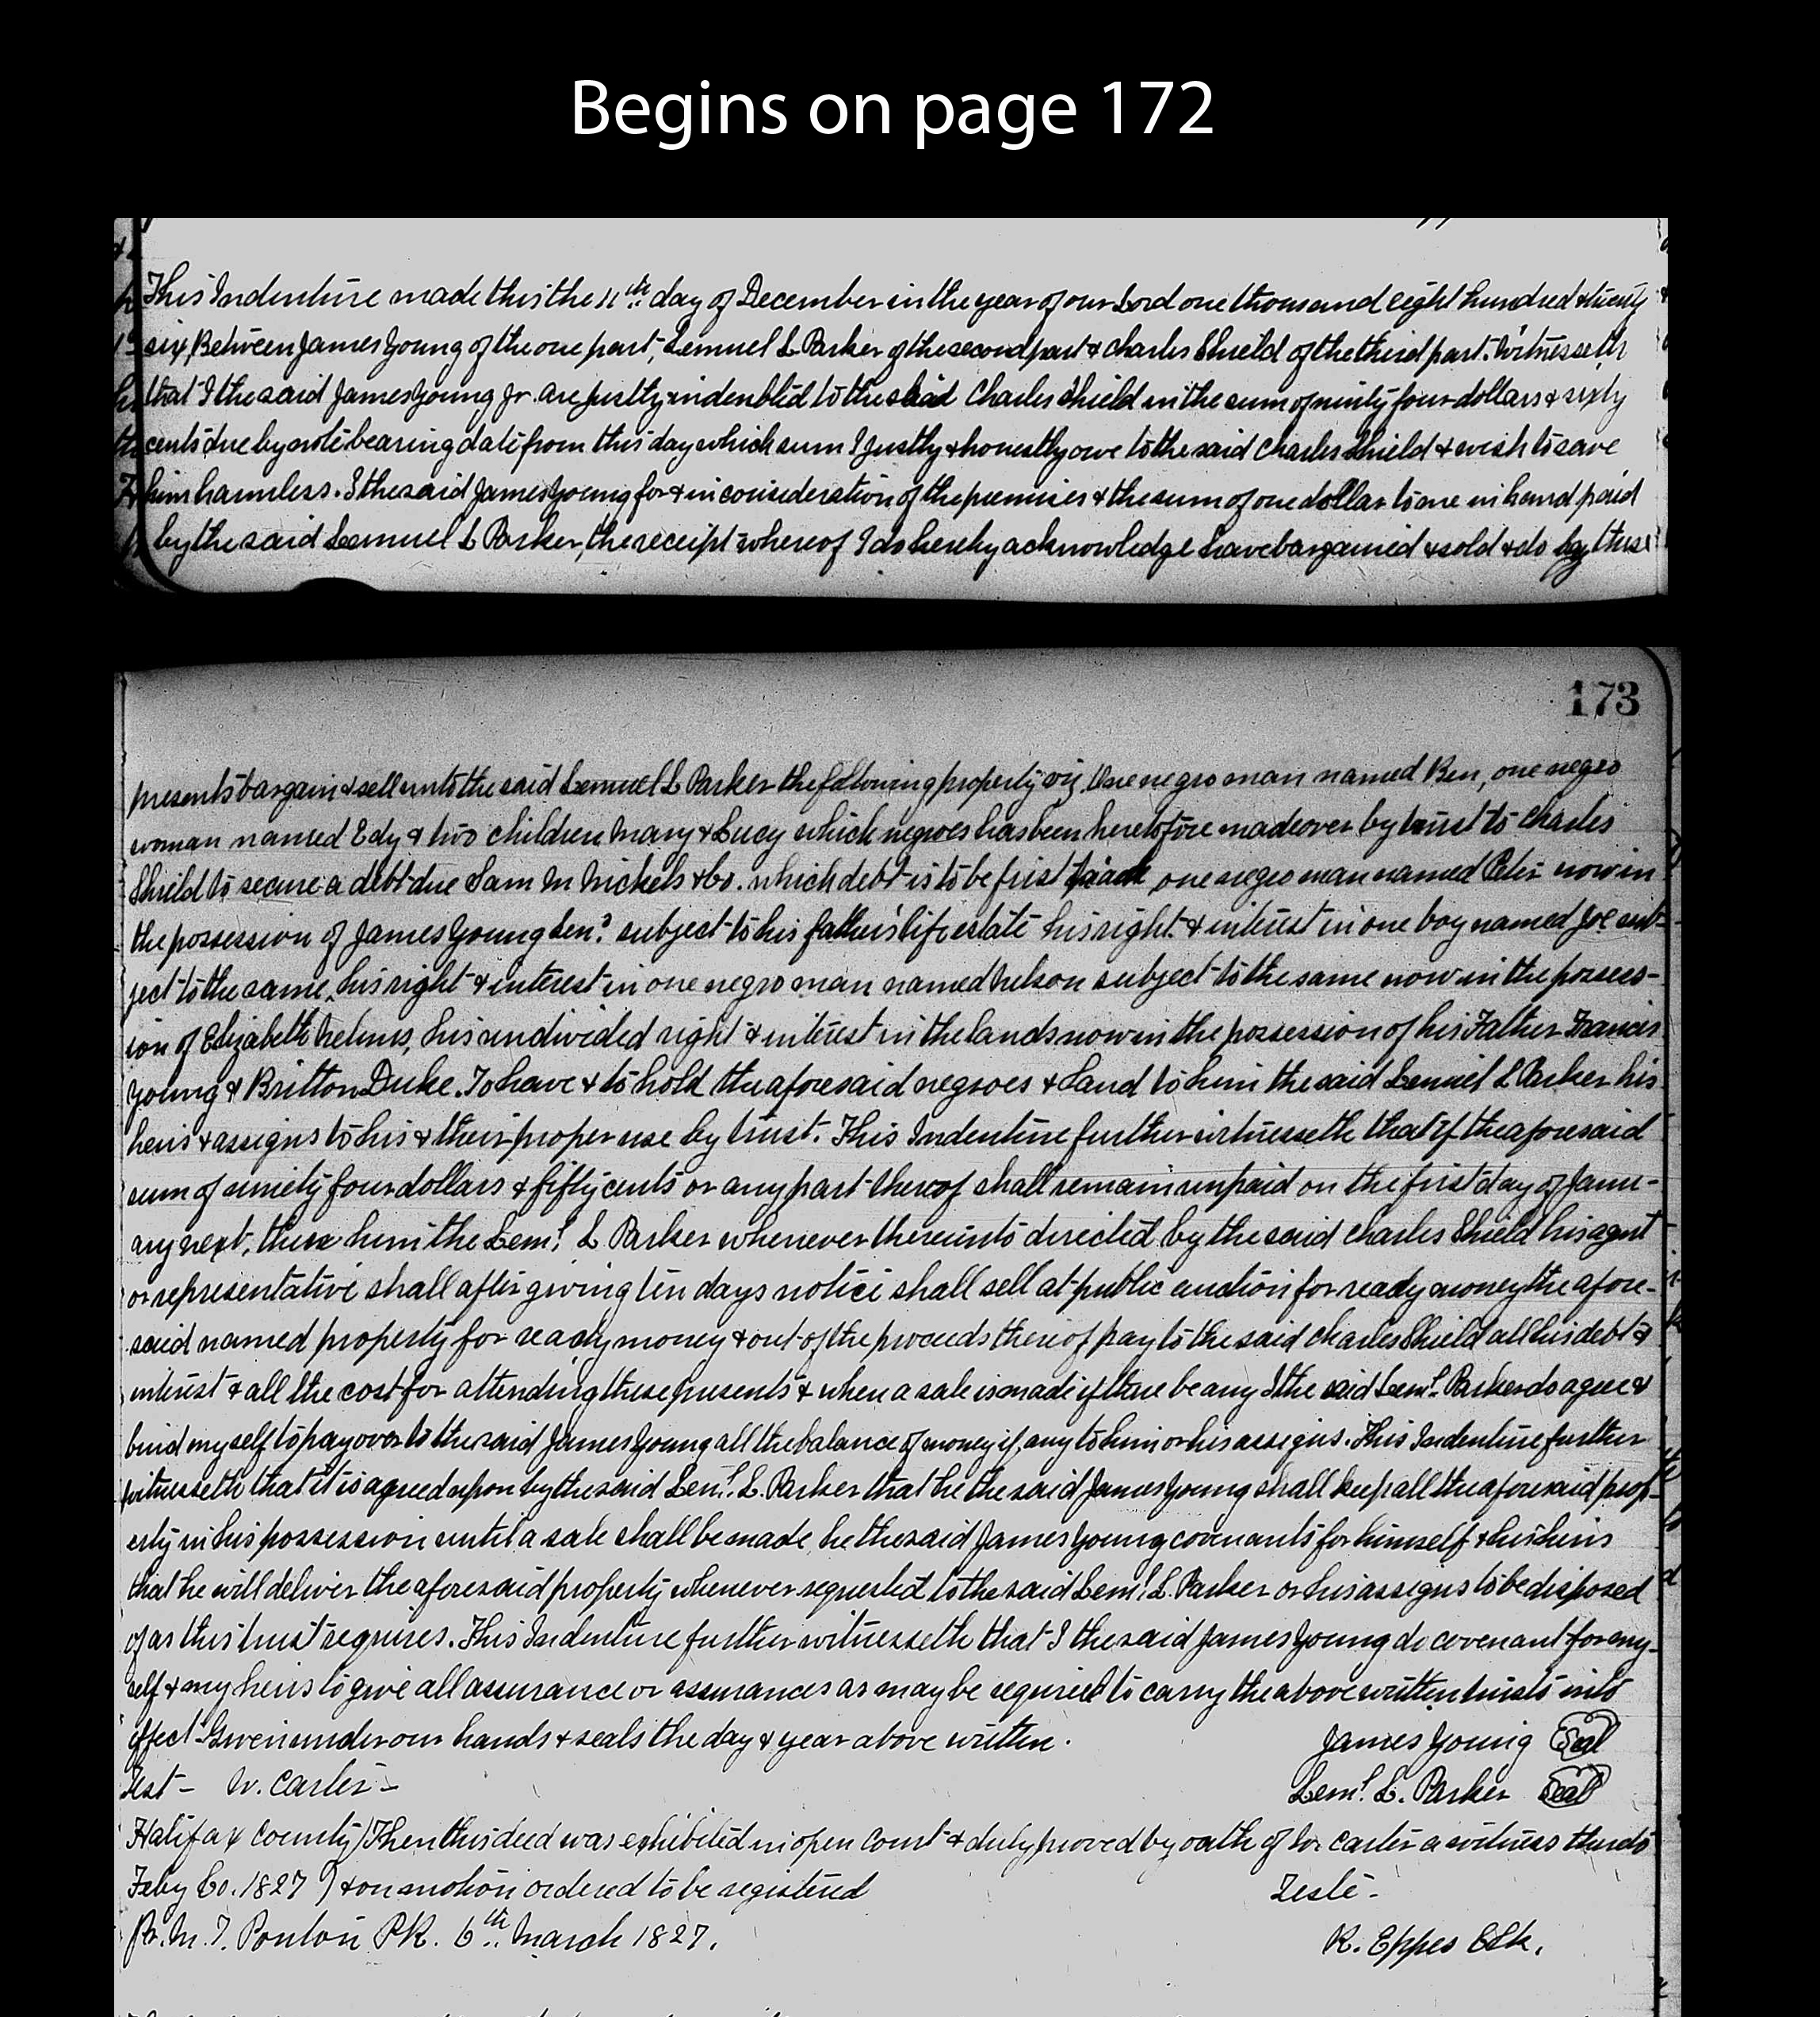 Begins on page 172
This Indenture made this the 11th day of December in the year of our Lord one thousand eight hundred & twenty
six Between James Young of the one part, Lemuel L Parker of the second part & Charles Shield of the third part. Witnesseth
that I the said James Young Jr. are justly indenbted to the said Charles Shield in the sum of ninty four dollars & sixty
cents due by note bearing date from this day which sum I justly & honestly owe to the said Charles Shield & wish to save
him harmless. I the said James Young for & in consideration of the premises & the sum of one dollar to me in hand paid
by the said Lemuel L Parker, the receipt whereof I do hereby acknowledge have bargained & sold & do by these
173
presents bargain & sell unto the said Lemuel L Parker the following property viz. One negro man named Ben, one negro
woman named Edy & two children Mary & Lucy which negroes has been heretofore madeover by trust to Charles
Shield to secure a debt due Sam M Nickels & Co. which debt is to be first paid one negro man named Peter now in
the possession of James Young Senr. subject to his father's life estate his right & interest in one boy named Joe sub-
ject to the same, his right & interest in one negro man named Nelson subject to the same now in the possess-
ion of Elizabeth his undivided right & interest in the lands now in the possession of his Father Francis
Young & Britton Duke. To have & to hold the aforesaid negroes & Land to him the said Lemuel L Parker his
heirs & assigns to his & their proper use by trust. This Indenture further witnesseth that if the aforesaid
sum of ninety four dollars & fifty cents or any part thereof shall remain unpaid on the first day of Janu-
ary next, then him the Leml. L Parker whenever thereunto directed by the said Charles Shield his agent
or representative shall after giving ten days notice shall sell at public auction for ready money the afore-
said named property for ready money & out of the proceeds thereof pay to the said Charles Shield all his debt &
interest & all the cost for attending these presents & when a sale is made if there be any I the said Leml. Parker do agree &
bind myself to pay over to the said James Young all the balance of money if any to him or his assigns. This Indenture further
witnesseth that it is agreed upon by the said Leml. L. Parker that he the said James Young shall keep all the aforesaid prop-
erty in his possession until a sale shall be made, he the said James Young covenants for himself & his heirs
that he will deliver the aforesaid property whenever requested to the said Leml. L. Parker or his assigns to be disposed
of as this trust requires. This Indenture further witnesseth that I the said James Young do covenant for my-
self & my heirs to give all assurance or assurances as may be required to carry the above written trusts into
effect. Given under our hands & seals the day & year above written. James Young Seal
Test - W. Carter - Leml. L. Parker Seal
Halifax County) Then this deed was exhibited in open Court & duly proved by oath of W. Carter a witness thereto
Feby Co. 1827 ) & on motion ordered to be registered Teste -
Pr. M. T. Ponton PR. 6th. March 1827. R. Eppes Clk.